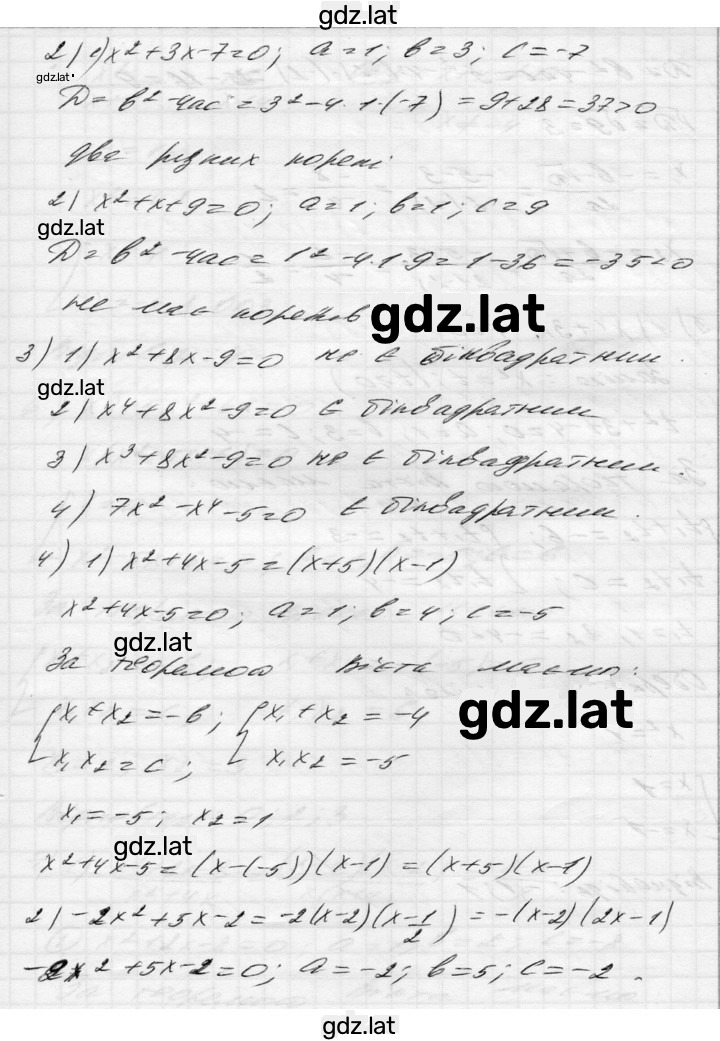 gdz.lat
2) 1) x² + 3x - 7 = 0; a = 1; b = 3; c = -7
gdz.lat
D = b² - 4ac = 3² - 4·1·(-7) = 9 + 28 = 37 > 0
два різних корені
2) x² + x + 9 = 0; a = 1; b = 1; c = 9
gdz.lat
D = b² - 4ac = 1² - 4·1·9 = 1 - 36 = -35 < 0
не має коренів
gdz.lat
3) 1) x² + 8x - 9 = 0 не є біквадратним.
gdz.lat
2) x⁴ + 8x² - 9 = 0 є біквадратним
3) x³ + 8x² - 9 = 0 не є біквадратним.
4) 7x² - x⁴ - 5 = 0 є біквадратним.
4) 1) x² + 4x - 5 = (x + 5)(x - 1)
x² + 4x - 5 = 0; a = 1; b = 4; c = -5
gdz.lat
За теоремою Вієта маємо:
{x₁ + x₂ = -b; {x₁ + x₂ = -4
gdz.lat
x₁x₂ = c; x₁x₂ = -5
x₁ = -5; x₂ = 1
gdz.lat
x² + 4x - 5 = (x - (-5))(x - 1) = (x + 5)(x - 1)
2) -2x² + 5x - 2 = -2(x - 2)(x - 1/2) = -(x - 2)(2x - 1)
-2x² + 5x - 2 = 0; a = -2; b = 5; c = -2.
gdz.lat